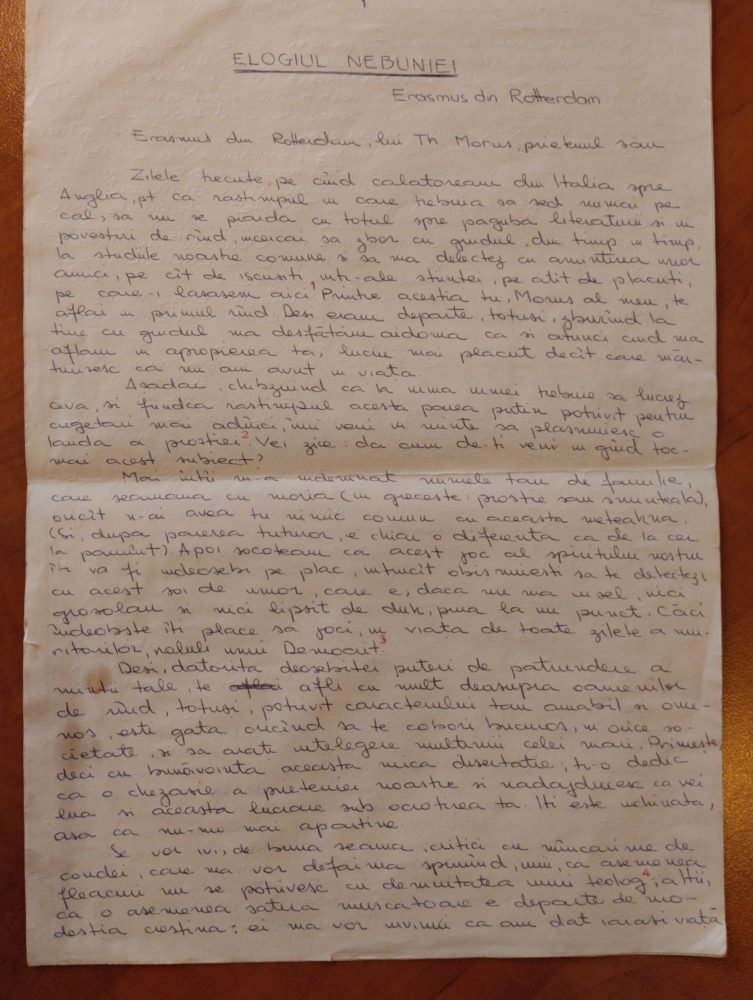 ELOGIUL NEBUNIEI
Erasmus din Rotterdam
Erasmus din Rotterdam, lui Th. Morus, prietenul său
Zilele trecute, pe cînd calatoream din Italia spre
Anglia, pt ca rastimpul in care trebuia sa sed numai pe
cal, sa nu se piarda cu totul spre paguba literaturii si in
povestiri de rînd, incercai sa zbor cu gindul, din timp in timp,
la studiile noastre comune si sa ma delectez cu amintirea unor
amici, pe cît de iscusiti intr-ale stiintei, pe atit de placuti,
pe care-i lasasem aici.¹ Printre acestia tu, Morus al meu, te
aflai in primul rînd. Desi eram departe, totusi, zburînd la
tine cu gindul ma desfătam aidoma ca si atunci cind ma
aflam in apropierea ta, lucru mai placut decît care măr-
turisesc ca nu am avut in viata.
Asadar, chibzuind ca la urma urmei trebuie sa lucrez
ceva, si fiindca rastimpul acesta parea putin potrivit pentru
cugetari mai adînci, imi veni in minte sa plasmuiesc o
lauda a prostiei.² Vei zice: da cum de-ti veni in gînd toc-
mai acest subiect?
Mai întîi m-a indemnat numele tau de familie,
care seamana cu moria (in greceste: prostie sau sminteala),
oricît n-ai avea tu nimic comun cu aceasta meteahna.
(Si, dupa parerea tuturor, e chiar o diferenta ca de la cer
la pamînt) Apoi socoteam ca acest joc al spiritului nostru
îti va fi indeosebi pe plac, intrucît obisnuiesti sa te delectezi
cu acest soi de umor, care e, daca nu ma insel, nici
grosolan si nici lipsit de duh, pina la un punct. Căci
îndeobste îti place sa joci, in viata de toate zilele a mu-
ritorilor, rolul unui Democrit.³
Desi, datorita deosebitei puteri de patrundere a
mintii tale, te afli cu mult deasupra oamenilor
de rînd, totusi, potrivit caracterului tau amabil si ome-
nos, este gata oricînd sa te cobori bucuros, in orice so-
cietate, si sa arati intelegere multimii celei mari. Primeste,
deci cu bunăvointa aceasta mica disertatie; ti-o dedic
ca o chezasie a prieteniei noastre si nadajduiesc ca vei
lua si aceasta lucrare sub ocrotirea ta. Iti este inchinata,
asa ca nu-mi mai apartine.
Se vor ivi, de buna seama, critici cu mîncarime de
condei, care ma vor defaima spunînd, unii, ca asemenea
fleacuri nu se potrivesc cu demnitatea unui teolog⁴, altii,
ca o asemenea satira muscatoare e departe de mo-
destia crestina: ei ma vor invinui ca am dat iarasi viată